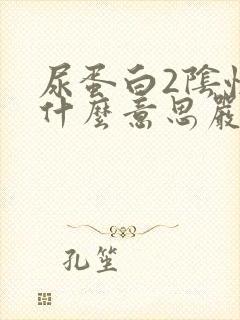 尿蛋白2陰性
什麼意思嚴
孔笙